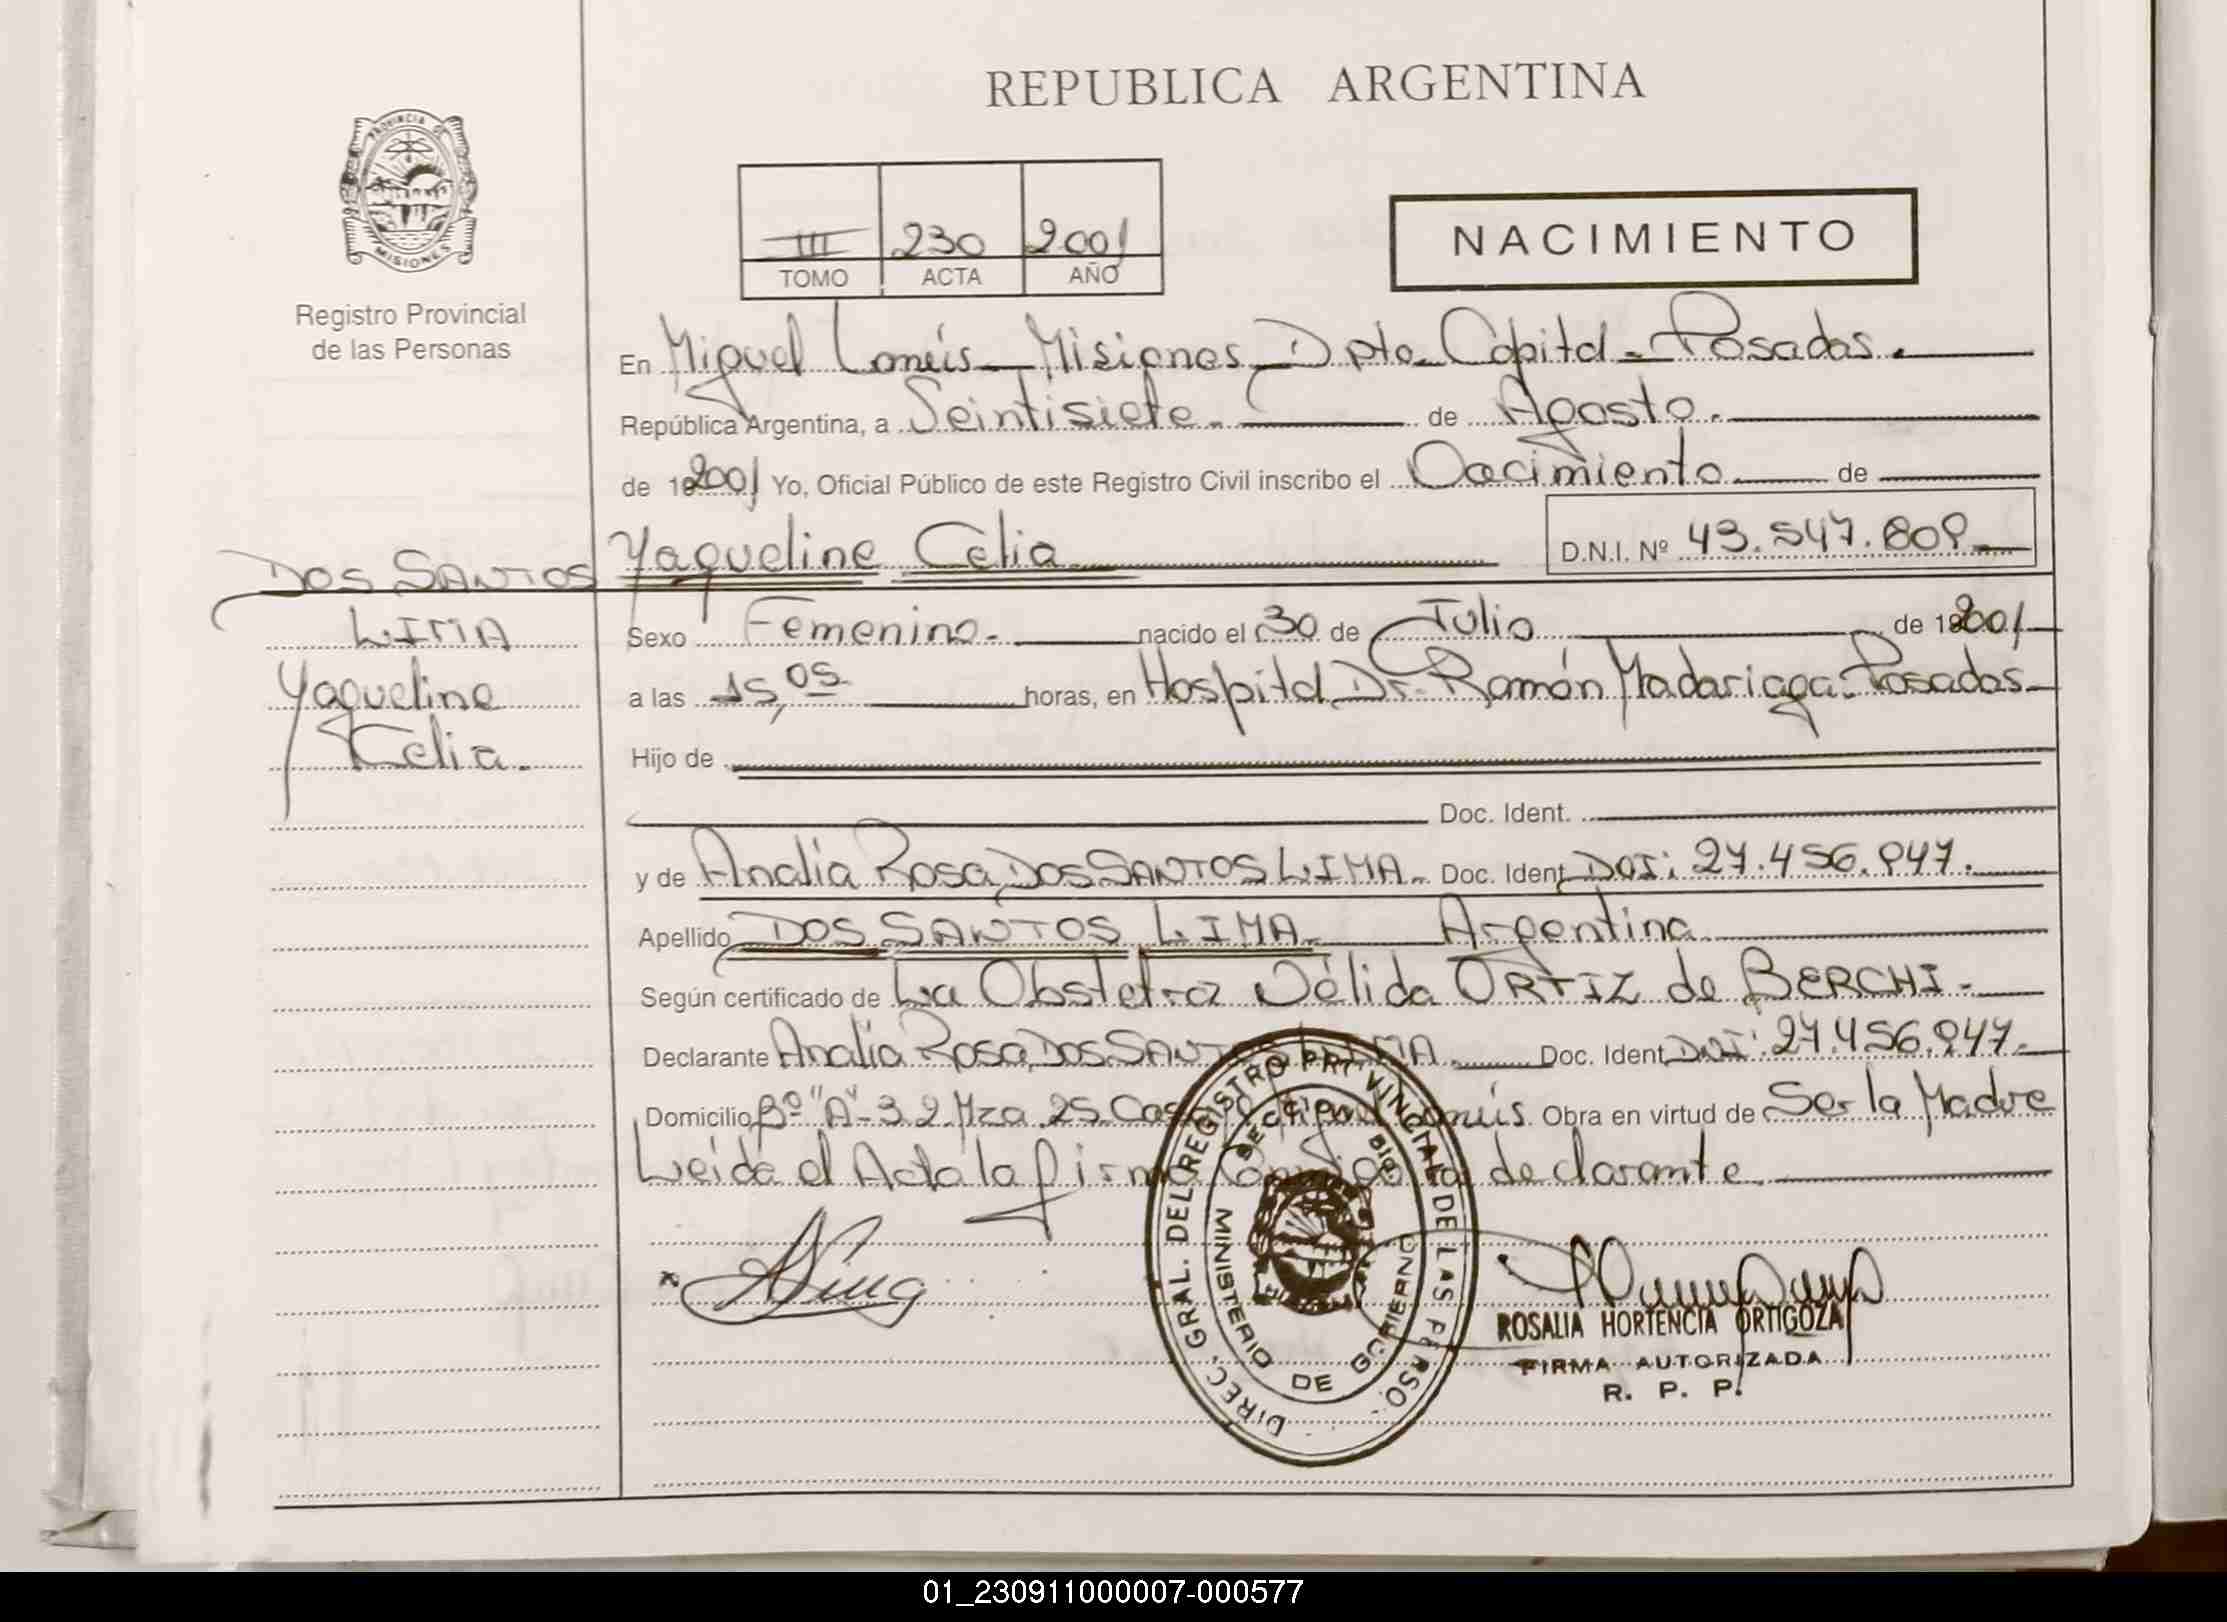 REPUBLICA ARGENTINA
PROVINCIA DE
MISIONES
Registro Provincial
de las Personas
III 230 2001
TOMO ACTA AÑO
NACIMIENTO
En Miguel Lanús - Misiones Dpto. Capital - Posadas.
República Argentina, a Veintisiete. de Agosto.
de 2001 Yo, Oficial Público de este Registro Civil inscribo el Nacimiento de
Yaqueline Celia D.N.I. Nº 43.547.809
DOS SANTOS
LIMA
Yaqueline
Celia.
Sexo Femenino. nacido el 30 de Julio de 2001
a las 15,05 horas, en Hospital Dr. Ramón Madariaga. Posadas
Hijo de
Doc. Ident.
y de Analía Rosa DOS SANTOS LIMA. Doc. Ident. DNI: 27.456.947.
Apellido DOS SANTOS LIMA Argentina
Según certificado de La Obstetra Nélida ORTIZ de BERCHI.
Declarante Analía Rosa DOS SANTOS LIMA. Doc. Ident. DNI: 27.456.947.
Domicilio Bº "A"-3 2 Mza 25 Casa Miguel Lanús. Obra en virtud de Ser la Madre
Leída el Acta la firma Conmigo la declarante.
DIREC. GRAL. DEL REGISTRO PROVINCIAL DE LAS PERSO.
MINISTERIO DE GOBIERNO
ROSALIA HORTENCIA ORTIGOZA
FIRMA AUTORIZADA
R. P. P.
01_230911000007-000577